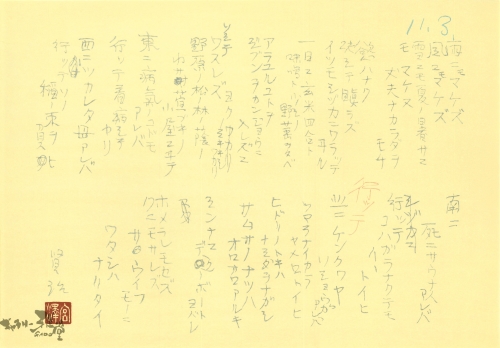 11.3.
雨ニモマケズ
風ニモマケズ
雪ニモ夏ノ暑サニモマケヌ
丈夫ナカラダヲモチ
慾ハナク
決シテ瞋ラズ
イツモシヅカニワラッテヰル
一日ニ玄米四合ト
味噌ト少シノ野菜ヲタベ
アラユルコトヲ
ジブンヲカンジョウニ入レズニ
ヨクミキキシワカリ
ソシテワスレズ
野原ノ松ノ林ノ蔭ノ
小サナ萓ブキノ小屋ニヰテ
東ニ病気ノコドモアレバ
行ッテ看病シテヤリ
西ニツカレタ母アレバ
行ッテソノ稲ノ束ヲ負ヒ
南ニ
死ニサウナ人アレバ
行ッテ
コハガラナクテモイヽトイヒ
北ニケンクヮヤ
ソショウガアレバ
ツマラナイカラ
ヤメロトイヒ
ヒドリノトキハ
ナミダヲナガシ
サムサノナツハ
オロオロアルキ
ミンナニ
デクノボートヨバレ
ホメラレモセズ
クニモサレズ
サウイフモノニ
ワタシハ
ナリタイ
賢治